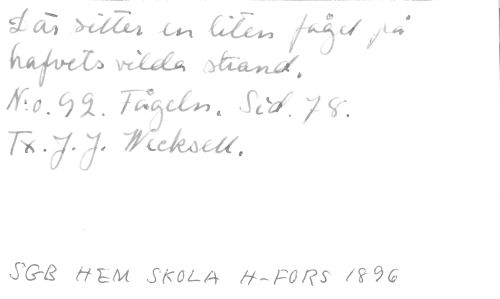 Där sitter en liten fågel på
hafvets vilda strand.
N:o. 92. Fågeln. Sid. 78.
Tx. J. J. Wecksell.
SGB HEM SKOLA H-FORS 1896